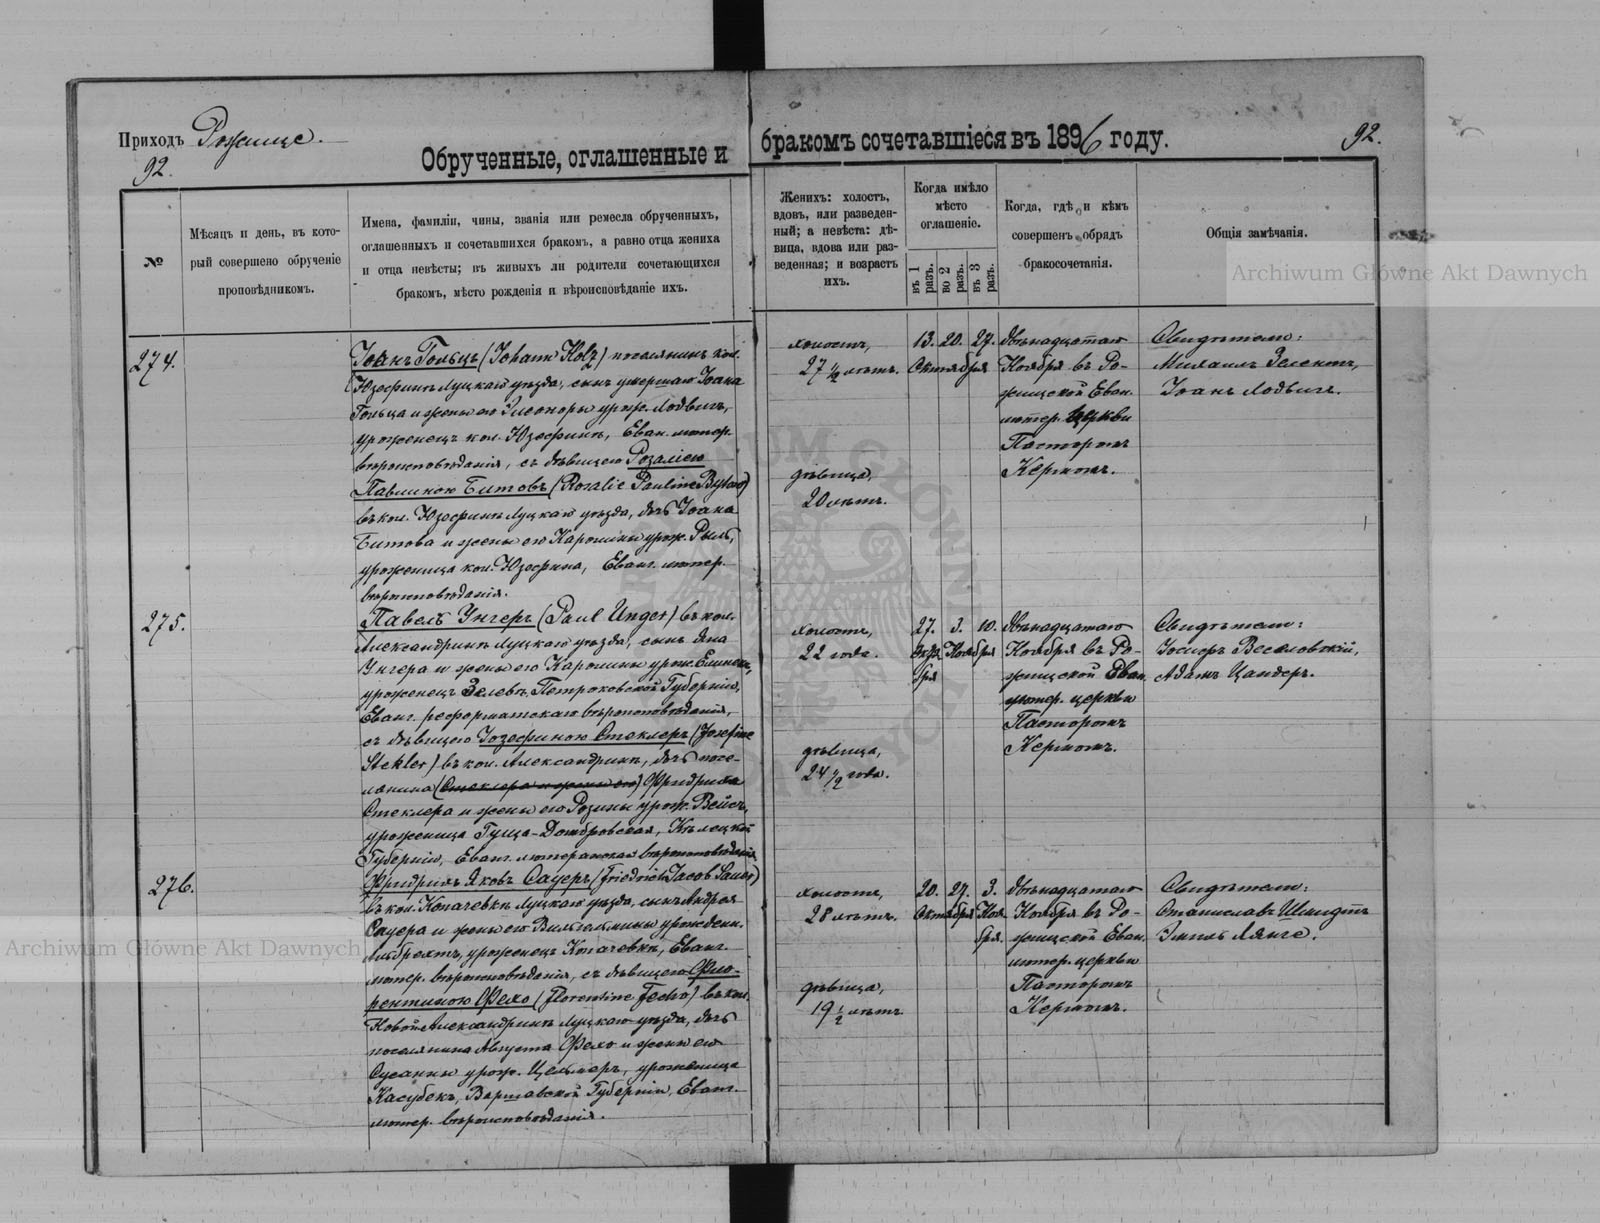 Приходъ Рожище.
92.
Обрученные, оглашенные и бракомъ сочетавшіеся въ 1896 году.
92.
№
Мѣсяцъ и день, въ кото-
рый совершено обрученіе
проповѣдникомъ.
Имена, фамиліи, чины, званія или ремесла обрученныхъ,
оглашенныхъ и сочетавшихся бракомъ, а равно отца жениха
и отца невѣсты; въ живыхъ ли родители сочетающихся
бракомъ, мѣсто рожденія и вѣроисповѣданіе ихъ.
Женихъ: холостъ,
вдовъ, или разведен-
ный; а невѣста: дѣ-
вица, вдова или раз-
веденная; и возрастъ
ихъ.
Когда имѣло
мѣсто
оглашеніе.
въ 1 разъ.
во 2 разъ.
въ 3 разъ.
Когда, гдѣ и кѣмъ
совершенъ обрядъ
бракосочетанія.
Общія замѣчанія.
274.
Іоанъ Гольцъ (Johann Holz) поселянинъ кол.
Юзефинъ Луцкаго уѣзда, сынъ умершаго Іоана
Гольца и жены его Элеоноры урож. Лодвигъ,
уроженецъ кол. Юзефинъ, Еван. лютер.
вѣроисповѣданія, съ дѣвицею Розаліею
Павлиною Битовъ (Rosalie Pauline Bytow)
въ кол. Юзефинъ Луцкаго уѣзда, дочь Іоана
Битова и жены его Каролины урож. Рыль,
уроженица кол. Юзефина, Еванг. лютер.
вѣроисповѣданія.
холостъ,
27 1/2 лѣтъ.
дѣвица,
20 лѣтъ.
13. 20. 27.
Октября
двѣнадцатаго
Ноября въ Ро-
жищской Еван.
лютер. церкви
Пасторомъ
Кермомъ.
Свидѣтели:
Михаилъ Зелентъ,
Іоанъ Лодвигъ.
275.
Павелъ Унгеръ (Paul Unger) въ кол.
Александринъ Луцкаго уѣзда, сынъ Яна
Унгера и жены его Каролины урож. Елинекъ,
уроженецъ Зелевъ, Петроковской Губерніи,
Еванг. реформатскаго вѣроисповѣданія,
съ дѣвицею Іозефиною Стеклеръ (Josefine
Stekler) въ кол. Александринъ, дочь посе-
лянина (Стеклера и жены его) Фридриха
Стеклера и жены его Розины урож. Вейсъ,
уроженица Гуща-Домбровская, Кѣлецкой
Губерніи, Еванг. лютеранскаго вѣроисповѣданія.
холостъ,
22 года.
дѣвица,
24 1/2 года.
27. 3. 10.
Октя- Ноября
бря
двѣнадцатаго
Ноября въ Ро-
жищской Еван.
лютер. церкви
Пасторомъ
Кермомъ.
Свидѣтели:
Іосифъ Веселовскій,
Адамъ Цандеръ.
276.
Фридрихъ Яковъ Сауеръ (Friedrich Jacob Sauer)
въ кол. Копачевкѣ Луцкаго уѣзда, сынъ Андрея
Сауера и жены его Вильгельмины урожденн.
Альбрехтъ, уроженецъ Копачевкѣ, Еванг.
лютер. вѣроисповѣданія, съ дѣвицею Фло-
рентиною Фехо (Florentine Fecho) въ кол.
Новой Александринъ Луцкаго уѣзда, дочь
поселянина Августа Фехо и жены его
Сусанны урож. Цельмеръ, уроженица
Касубекъ, Варшавской Губерніи, Еванг.
лютер. вѣроисповѣданія.
холостъ,
28 лѣтъ.
дѣвица,
19 1/2 лѣтъ
20. 27. 3.
Октября Ноя-
бря.
двѣнадцатаго
Ноября въ Ро-
жищской Еван.
лютер. церкви
Пасторомъ
Кермомъ.
Свидѣтели:
Станиславъ Шмидтъ
Эмиль Лянге.
Archiwum Główne Akt Dawnych
Archiwum Główne Akt Dawnych